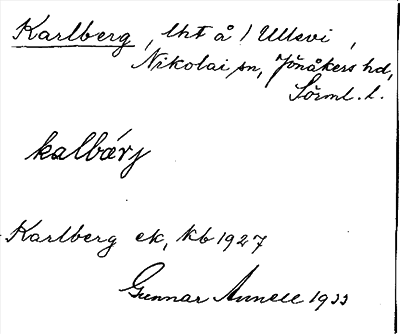 Karlberg, lht å 1 Ullevi,
Nikolai sn, Jönåkers hd,
Sörml. l.
kalbárj
Karlberg ek, kb 1927
Gunnar Annell 1933